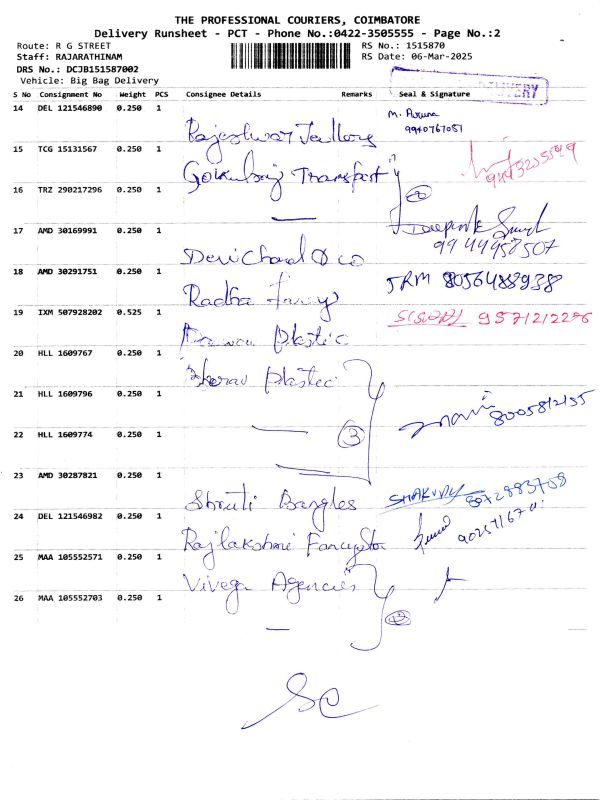 THE PROFESSIONAL COURIERS, COIMBATORE
Delivery Runsheet - PCT - Phone No.:0422-3505555 - Page No.:2
Route: R G STREET
Staff: RAJARATHINAM
DRS No.: DCJB151587002
Vehicle: Big Bag Delivery
RS No.: 1515870
RS Date: 06-Mar-2025
S No Consignment No Weight PCS Consignee Details Remarks Seal & Signature
14 DEL 121546890 0.250 1
Rajeshwar
9940767051
15 TCG 15131567 0.250 1
Transport
16 TRZ 290217296 0.250 1
2
17 AMD 30169991 0.250 1
Devichand & co
9944958507
18 AMD 30291751 0.250 1
Radha Fancy JRM 8056488938
19 IXM 507928202 0.525 1
Plastic
20 HLL 1609767 0.250 1
Plastic
21 HLL 1609796 0.250 1
22 HLL 1609774 0.250 1
3
23 AMD 30287821 0.250 1
Shruti Bangles
24 DEL 121546982 0.250 1
Rajlakshmi
25 MAA 105552571 0.250 1
Vivega Agencies
26 MAA 105552703 0.250 1